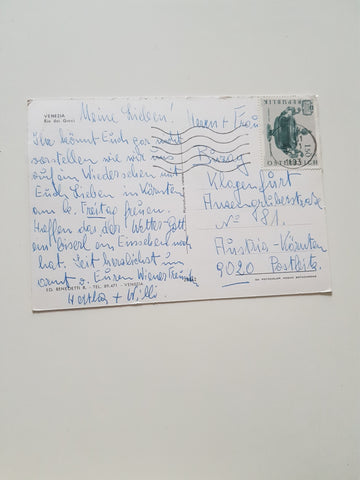 VENEZIA
Rio dei Greci
Meine Lieben!
Ihr könnt Euch gar nicht
vorstellen wie wir uns
auf ein Wiedersehen mit
Euch Lieben in Kärnten
am 6. Freitag freuen.
Hoffen das der Wetter-Gott
ein bisserl ein Einsehen noch
hat. Seit herzlichst um
armt v. Euren Wiener Freunden
Hertha + Willi.
ED. BENEDETTI R. - TEL. 89.671 - VENEZIA
Herrn + Frau
Klagenfurt
Anzengruberstrasse
No 81.
Austria - Kärnten
9020 Postleitz.
REPUBLIK
ÖSTERREICH